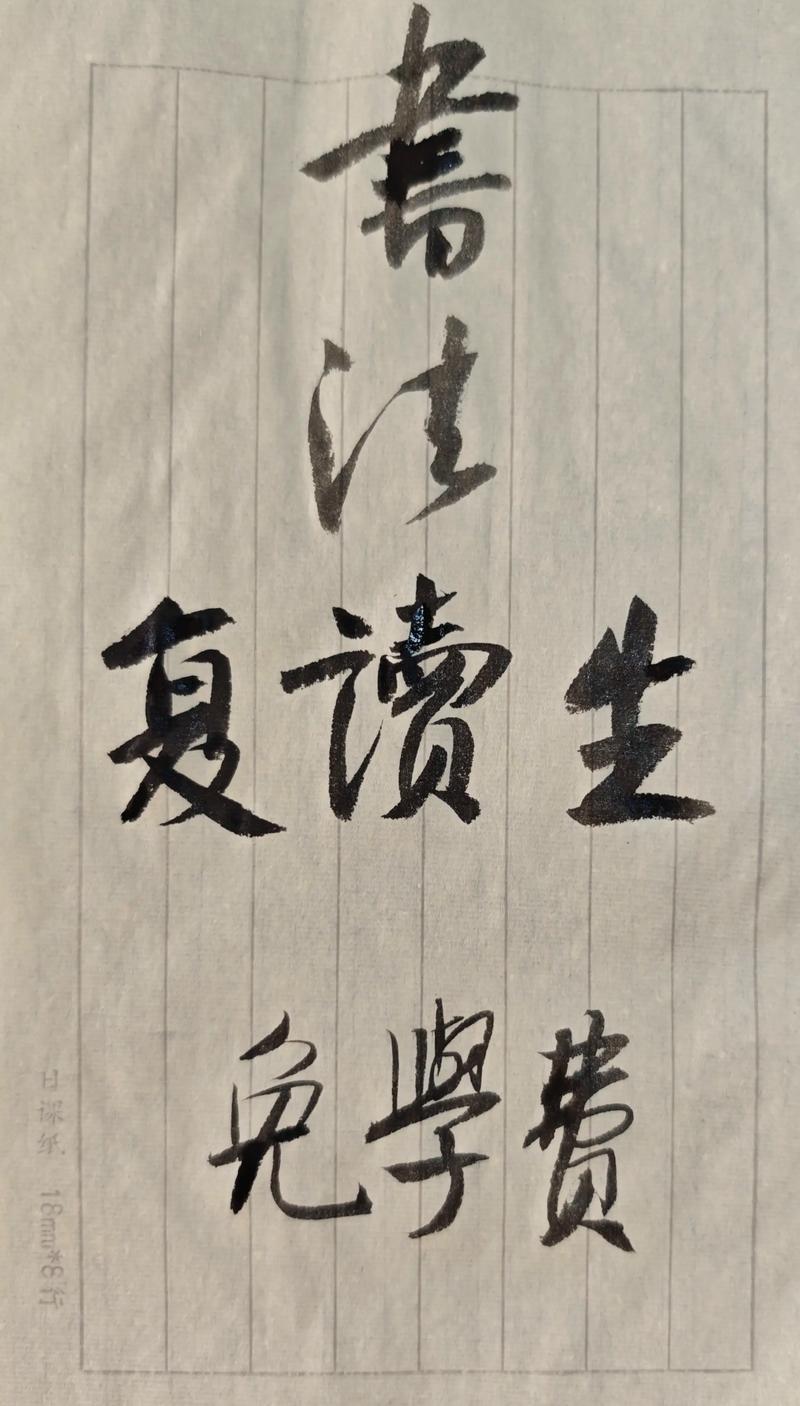 書
法
复讀生
免學费
日课纸 18mm*8行